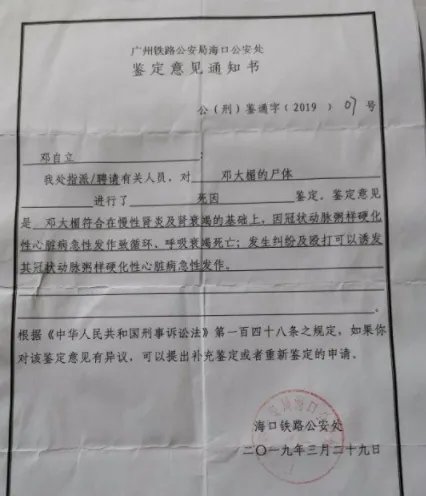 广州铁路公安局海口公安处
鉴定意见通知书
公(刑)鉴通字〔2019〕07号
邓自立:
我处指派/聘请有关人员,对 邓大楣的尸体
进行了 死因 鉴定。鉴定意见
是 邓大楣符合在慢性肾炎及肾衰竭的基础上,因冠状动脉粥样硬化
性心脏病急性发作致循环、呼吸衰竭死亡;发生纠纷及殴打可以诱发
其冠状动脉粥样硬化性心脏病急性发作。
根据《中华人民共和国刑事诉讼法》第一百四十八条之规定,如果你
对该鉴定意见有异议,可以提出补充鉴定或者重新鉴定的申请。
海口铁路公安处
二〇一九年三月二十九日